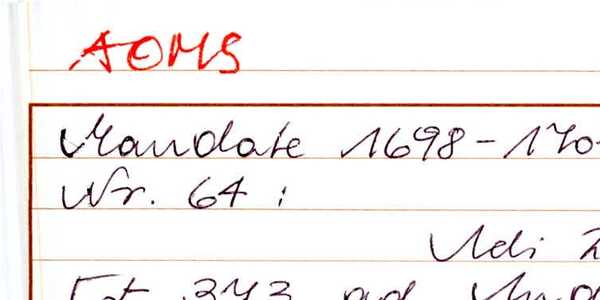 AOMS
Mandate 1698-170
Nr. 64:
Udi 2
Fot 343 ad